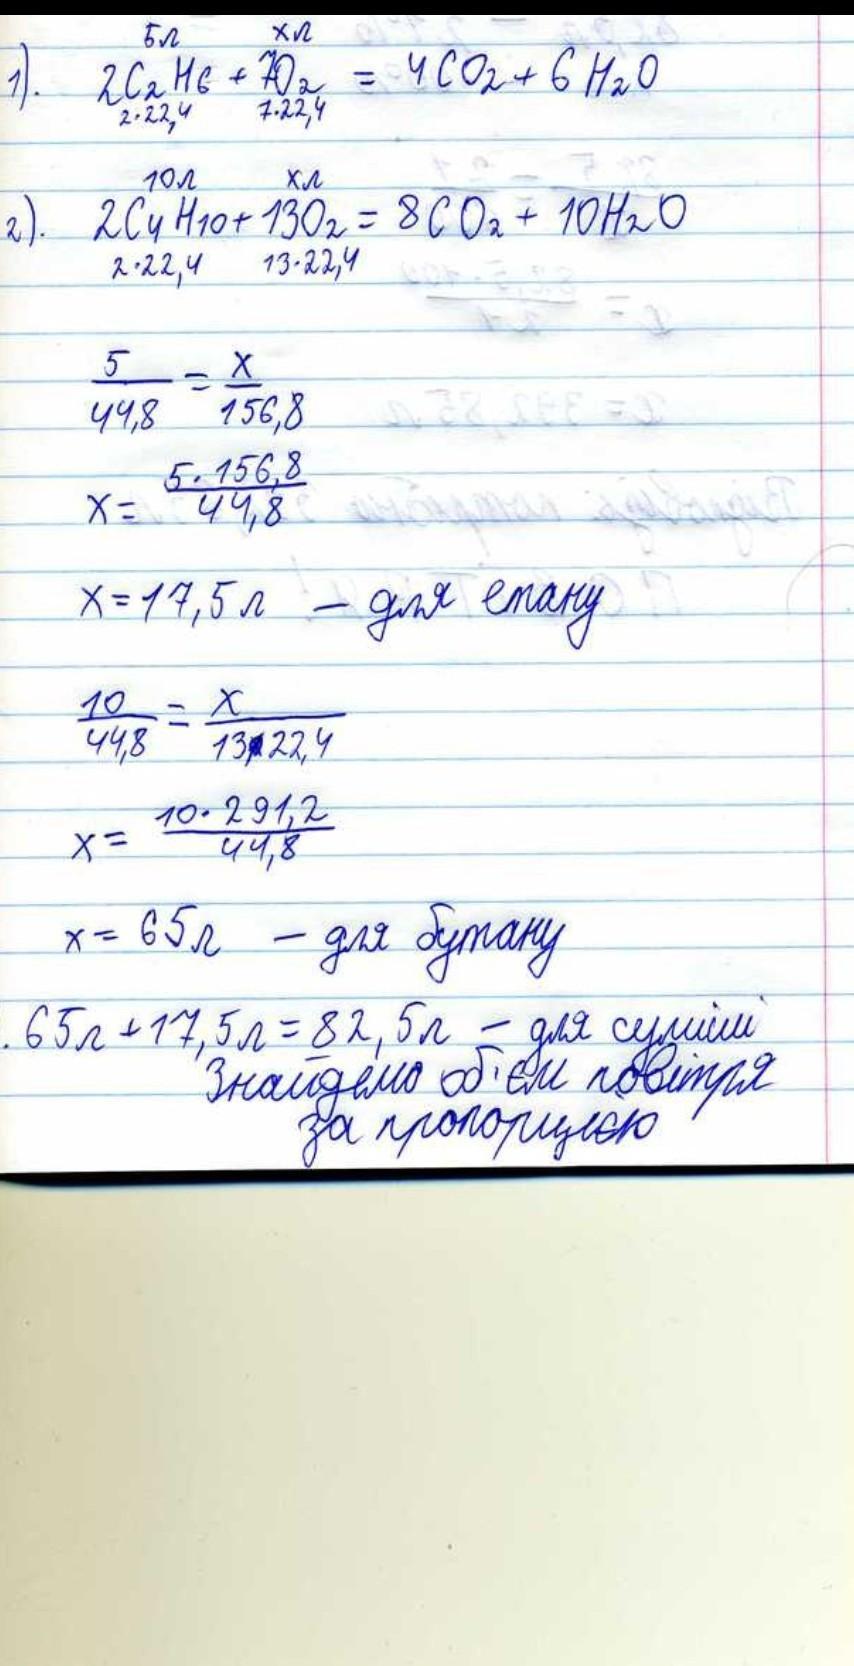 5л хл
1). 2C₂H₆ + 7O₂ = 4CO₂ + 6H₂O
2·22,4 7·22,4
10л хл
2). 2C₄H₁₀ + 13O₂ = 8CO₂ + 10H₂O
2·22,4 13·22,4
5/44,8 = x/156,8
x = 5·156,8/44,8
x = 17,5л – для етану
10/44,8 = x/13·22,4
x = 10·291,2/44,8
x = 65л – для бутану
65л + 17,5л = 82,5л – для суміші
Знайдемо об'єм повітря
за пропорцією